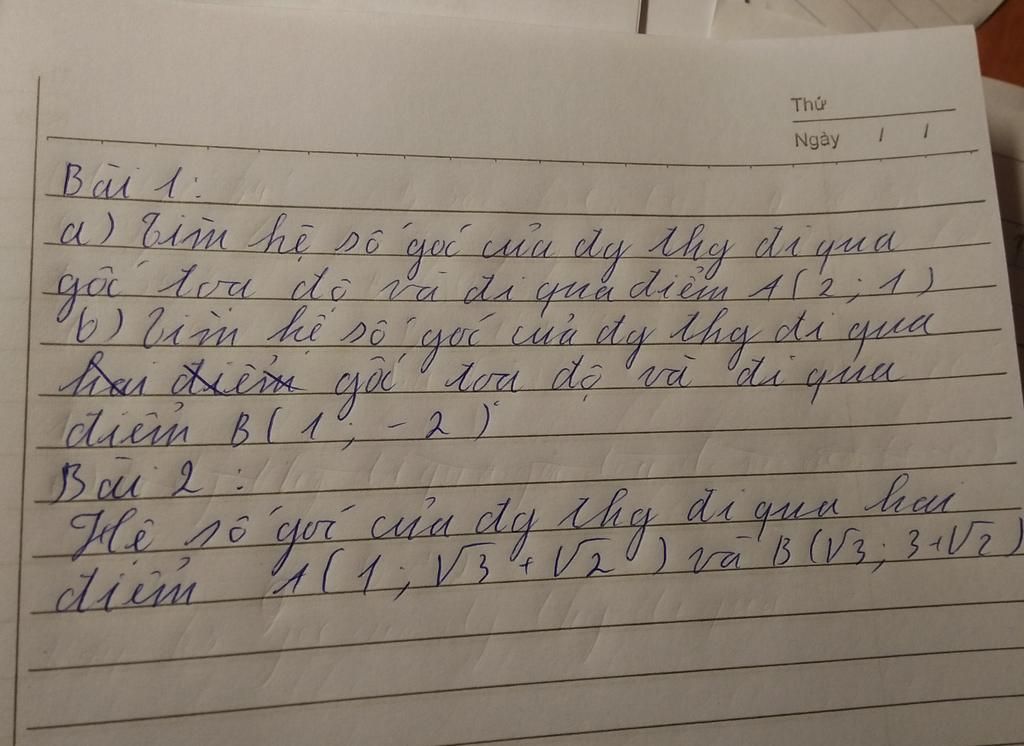 Thứ
Ngày / /
Bài 1:
a) Tìm hệ số góc của đg thg đi qua
gốc tọa độ và đi qua điểm A(2; 1)
b) Tìm hệ số góc của đg thg đi qua
hai điểm gốc tọa độ và đi qua
điểm B(1; -2)
Bài 2:
Hệ số góc của đg thg đi qua hai
điểm A(1; √3 + √2) và B(√3; 3+√2)